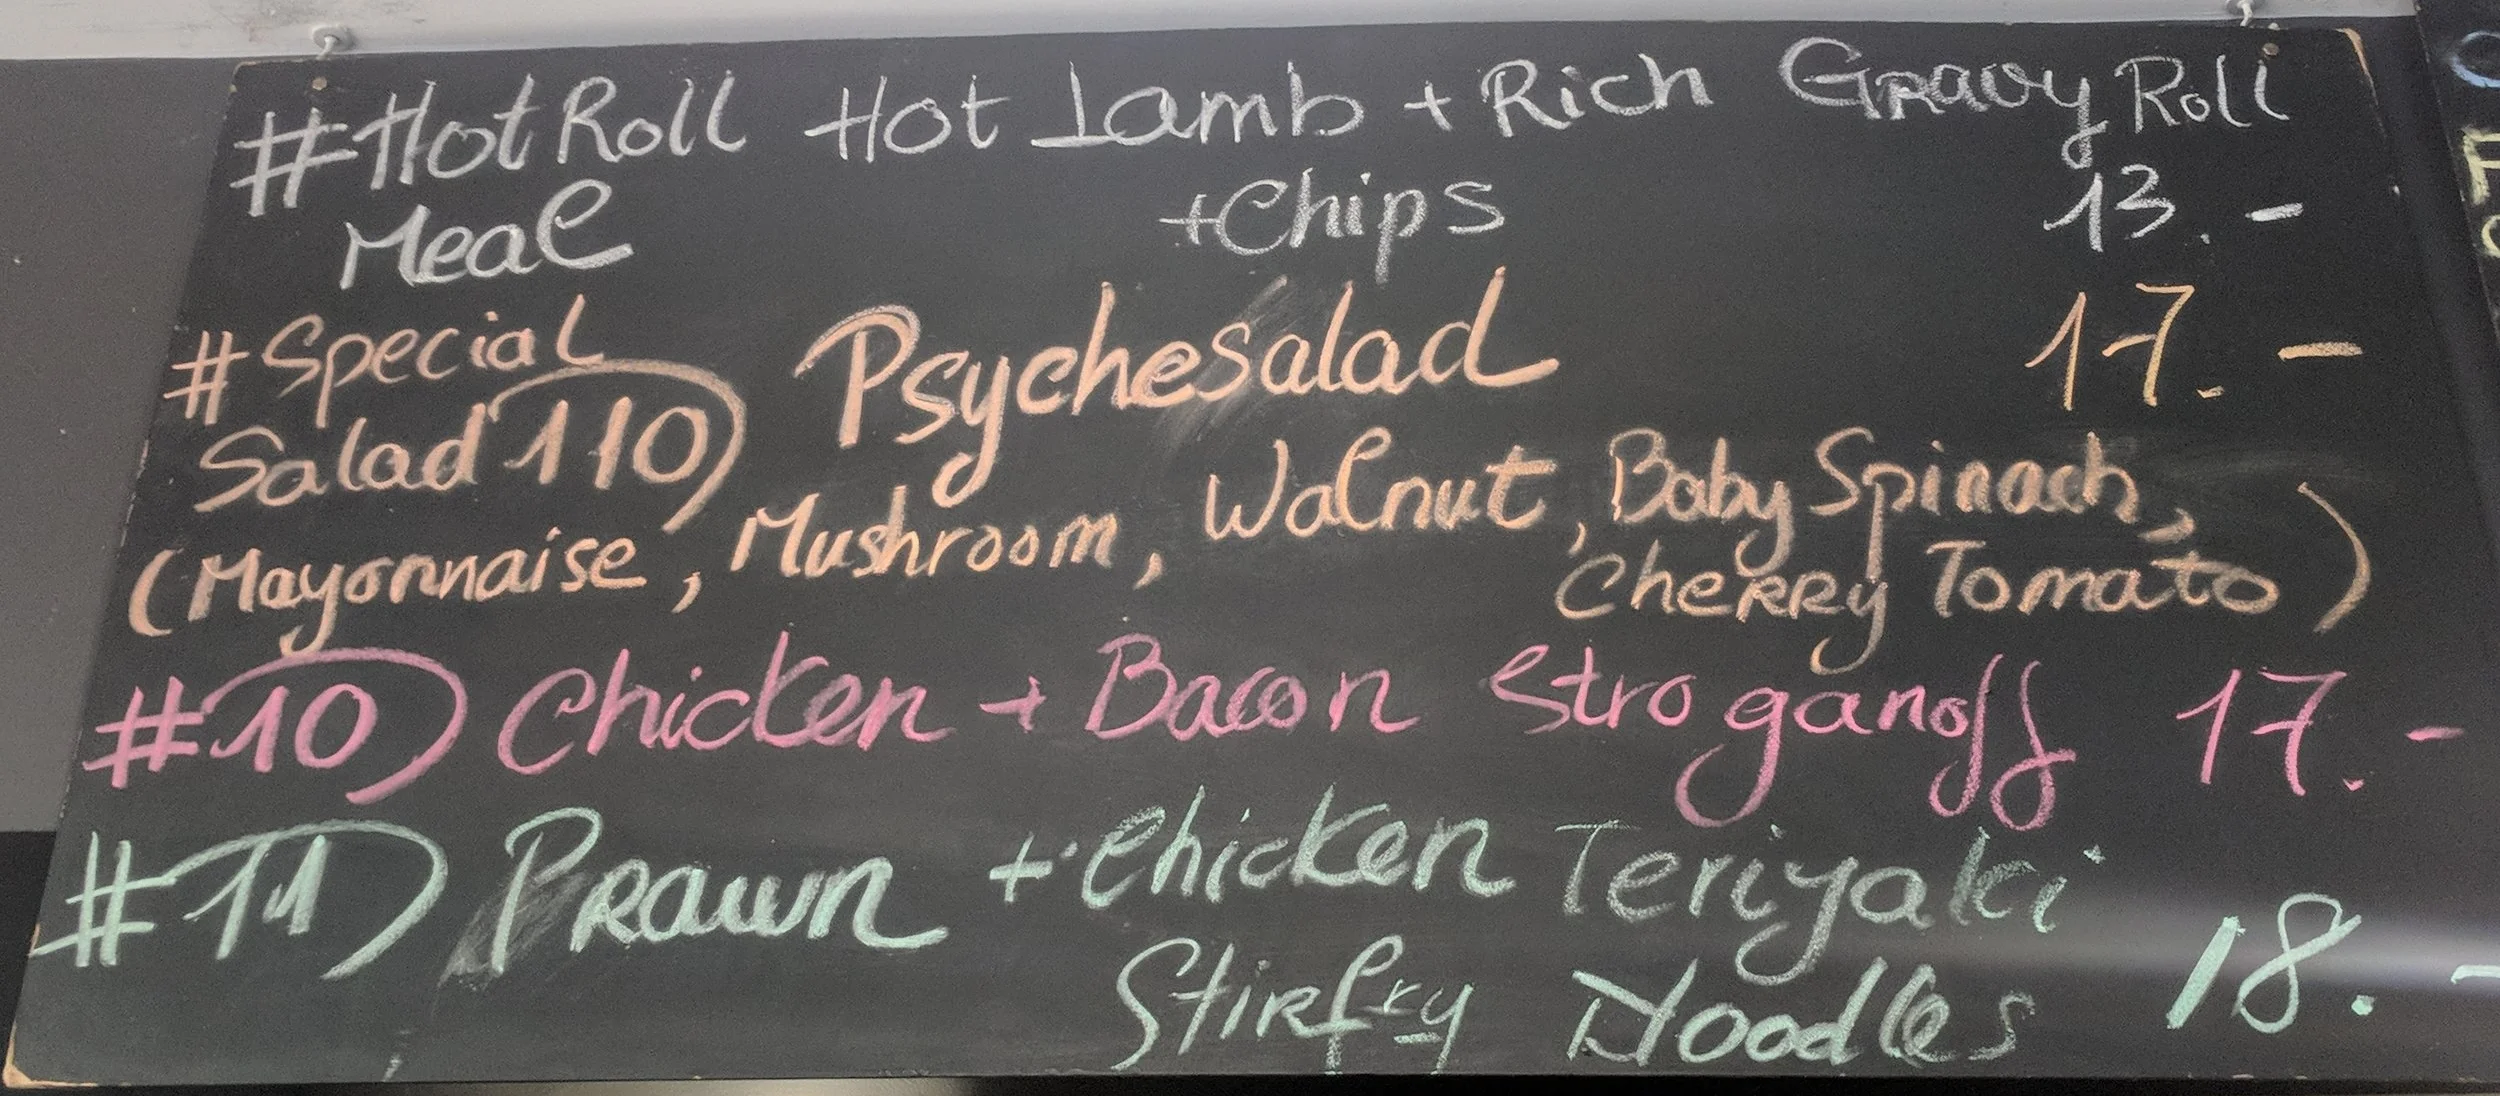 #Hot Roll Hot Lamb + Rich Gravy Roll
Meal +Chips 13.-
#Special Psychesalad 17.-
Salad 110)
(Mayonnaise, Mushroom, Walnut, Baby Spinach,
Cherry Tomato)
#10) Chicken + Bacon Stroganoff 17.-
#11) Prawn + Chicken Teriyaki
Stirfry Noodles 18.-